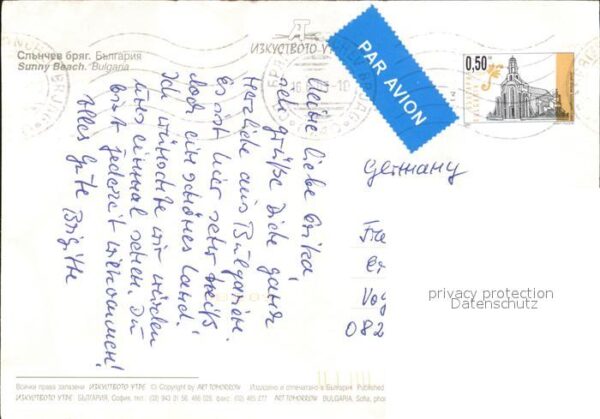 Слънчев бряг. България
Sunny Beach. Bulgaria
ИЗКУСТВОТО УТРЕ
PAR AVION
0,50
Meine liebe Erika,
ich grüße Dich ganz
herzlich aus Bulgarien.
Es ist hier sehr heiß,
doch ein schönes Land.
Ich wünschte wir würden
uns einmal sehen. Du
bist jederzeit willkommen!
Alles Gute Brigitte
Germany
Fra
Er
Vog
082
privacy protection
Datenschutz
Всички права запазени ИЗКУСТВОТО УТРЕ © Copyright by ART TOMORROW Издадено и отпечатано в България Published
ИЗКУСТВОТО УТРЕ БЪЛГАРИЯ, София, тел: (02) 943 01 56, 466 025, факс (02) 465 277 ART TOMORROW BULGARIA, Sofia, phon